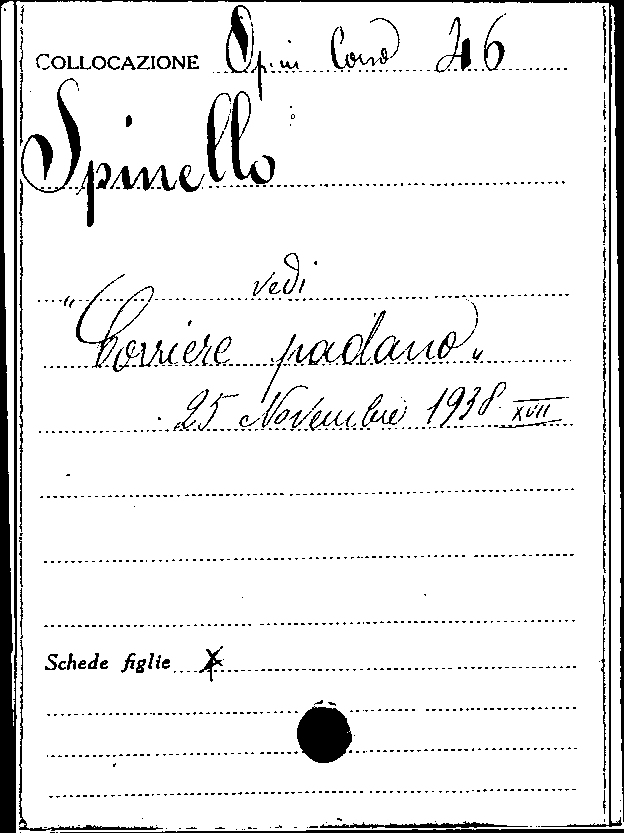 COLLOCAZIONE Opusc. Corso 46
Spinello
vedi
"Corriere padano"
25 Novembre 1938 XVII
Schede figlie